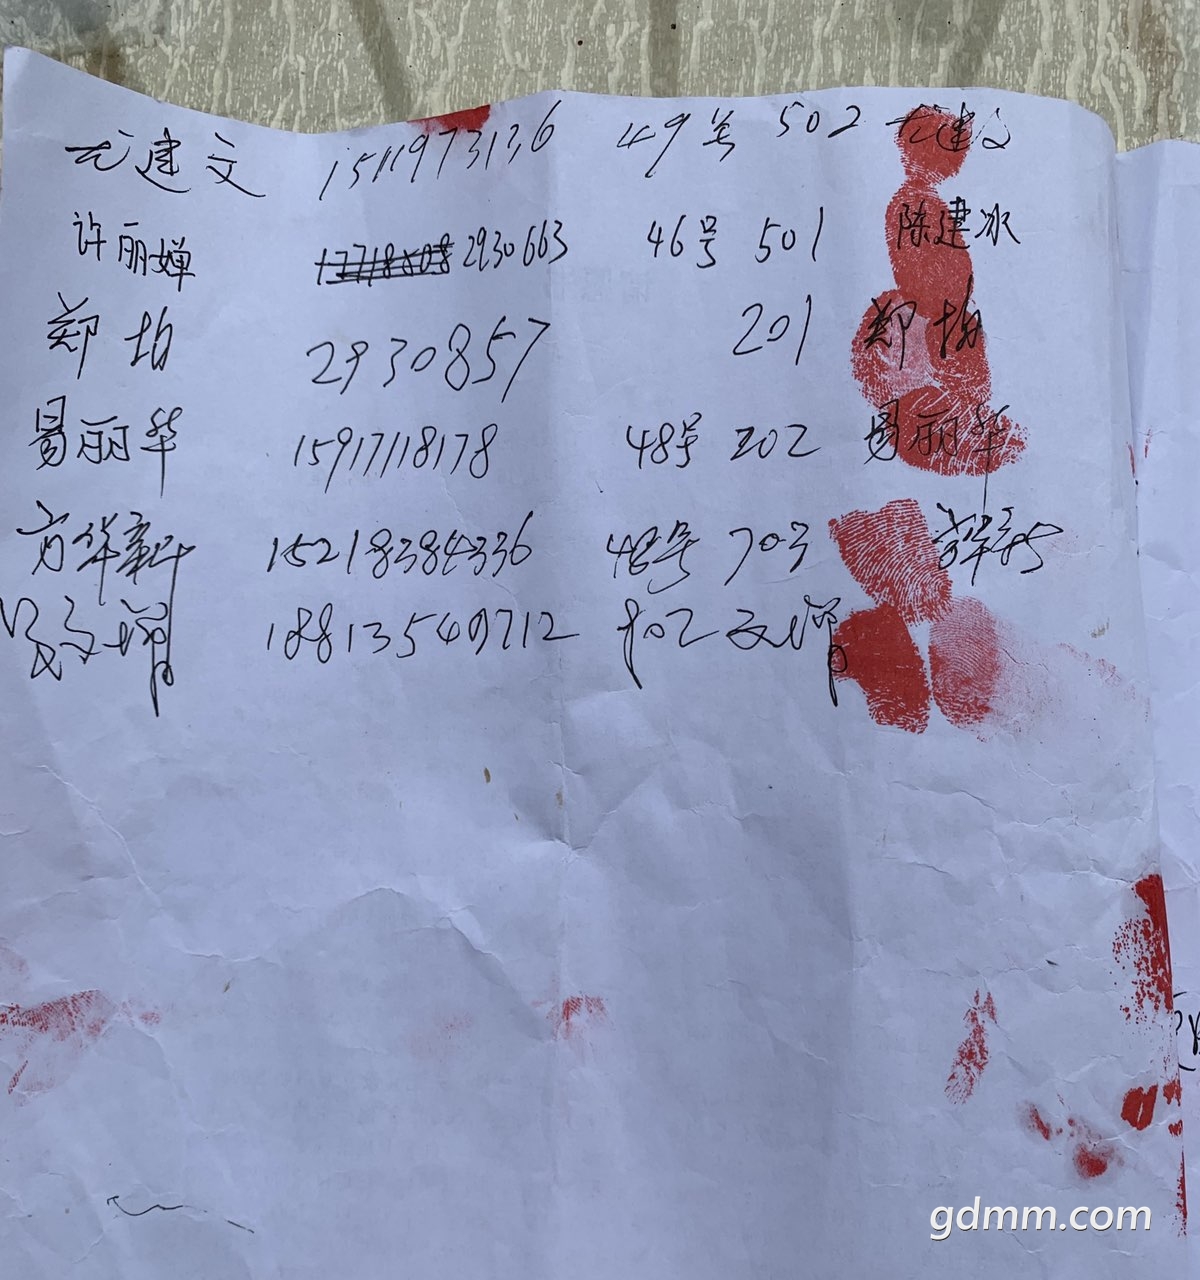 尤建文 15119731136 49号 502 尤建文
许丽婵 2930663 46号 501 陈建冰
郑均 2930857 201 郑均
易丽华 15917118178 48号 202 易丽华
方华新 15218384336 48号 703
18813549712 702
gdmm.com